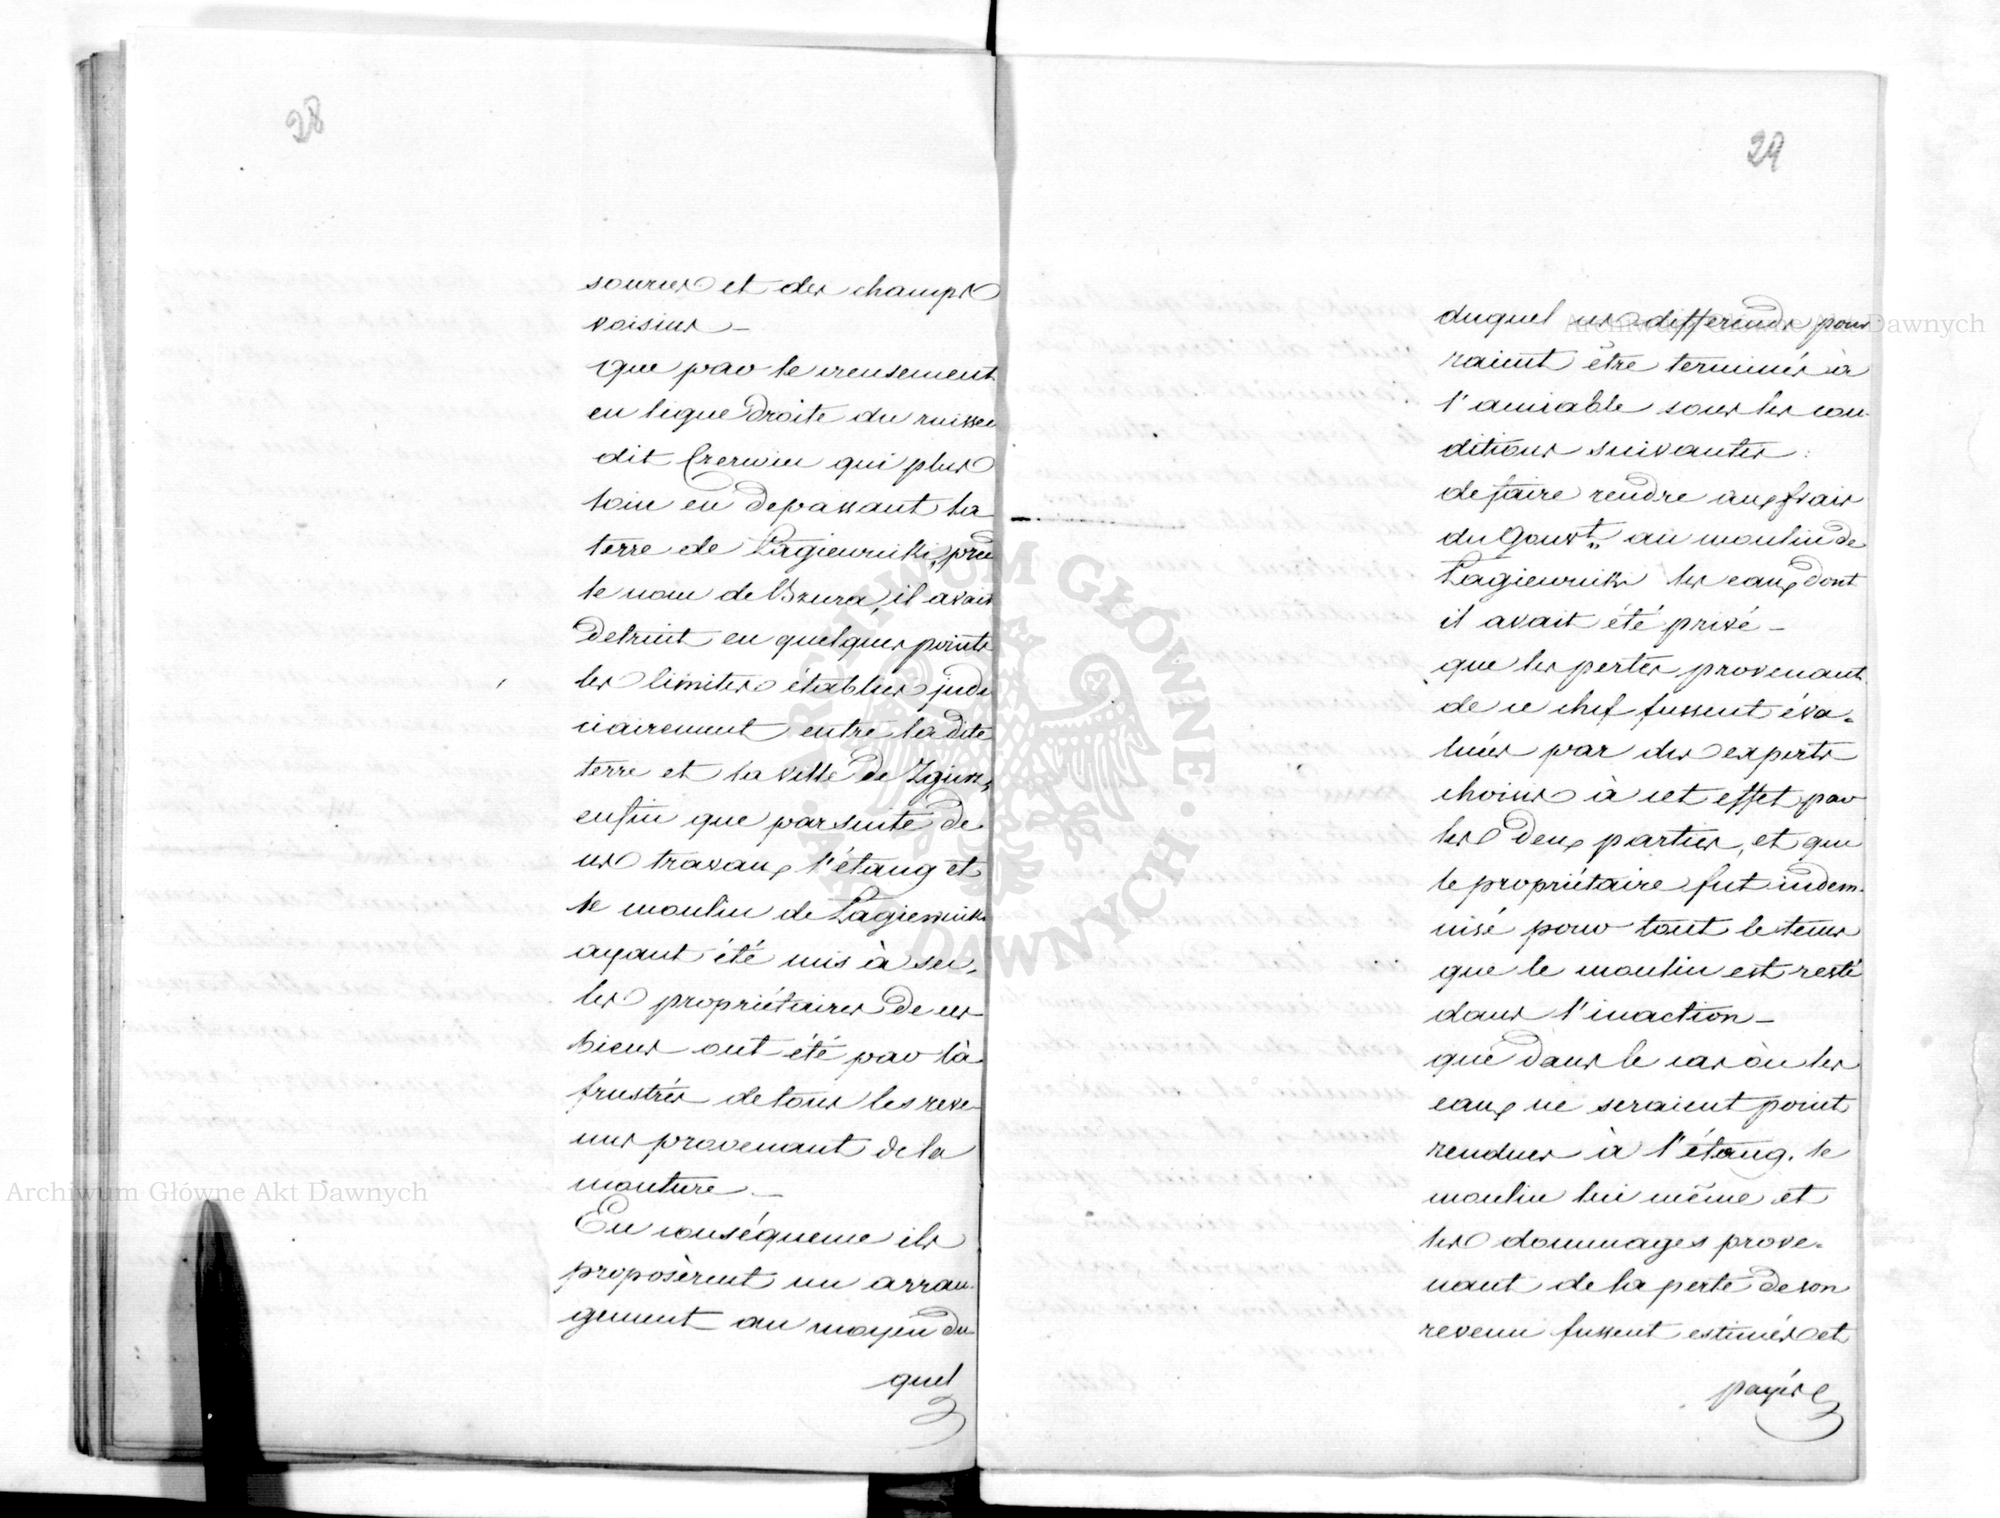 28
sources et des champs
voisins –
que par le creusement
en ligne droite du ruisseau
dit Czerwin qui plus
loin en depassant la
terre de Łagiewniki, prend
le nom de Bzura, il avait
detruit en quelques points
les limites établies judi
ciairement entre la dite
terre et la ville de Zgierz,
enfin que par suite de
ces travaux l'étang et
le moulin de Łagiewniki
ayant été mis à sec,
les propriétaires de ces
biens ont été par là
frustrés de tous les reve-
nus provenant de la
mouture –
En conséquence ils
proposèrent un arran-
gement au moyen du
quel
29
duquel ces différends pour
raient être terminés à
l'amiable sous les con-
ditions suivantes :
de faire rendre aux frais
du Gouvt. au moulin de
Łagiewniki les eaux dont
il avait été privé –
que les pertes provenant
de ce chef fussent éva-
luées par des experts
choisis à cet effet par
les deux parties, et que
le propriétaire fut indem-
nisé pour tout le tems
que le moulin est resté
dans l'inaction –
que dans le cas où les
eaux ne seraient point
rendues à l'étang, le
moulin lui même et
les dommages prove-
nant de la perte de son
revenu fussent estimés et
payés
Archiwum Główne Akt Dawnych
Archiwum Główne Akt Dawnych
ARCHIWUM GŁÓWNE AKT DAWNYCH